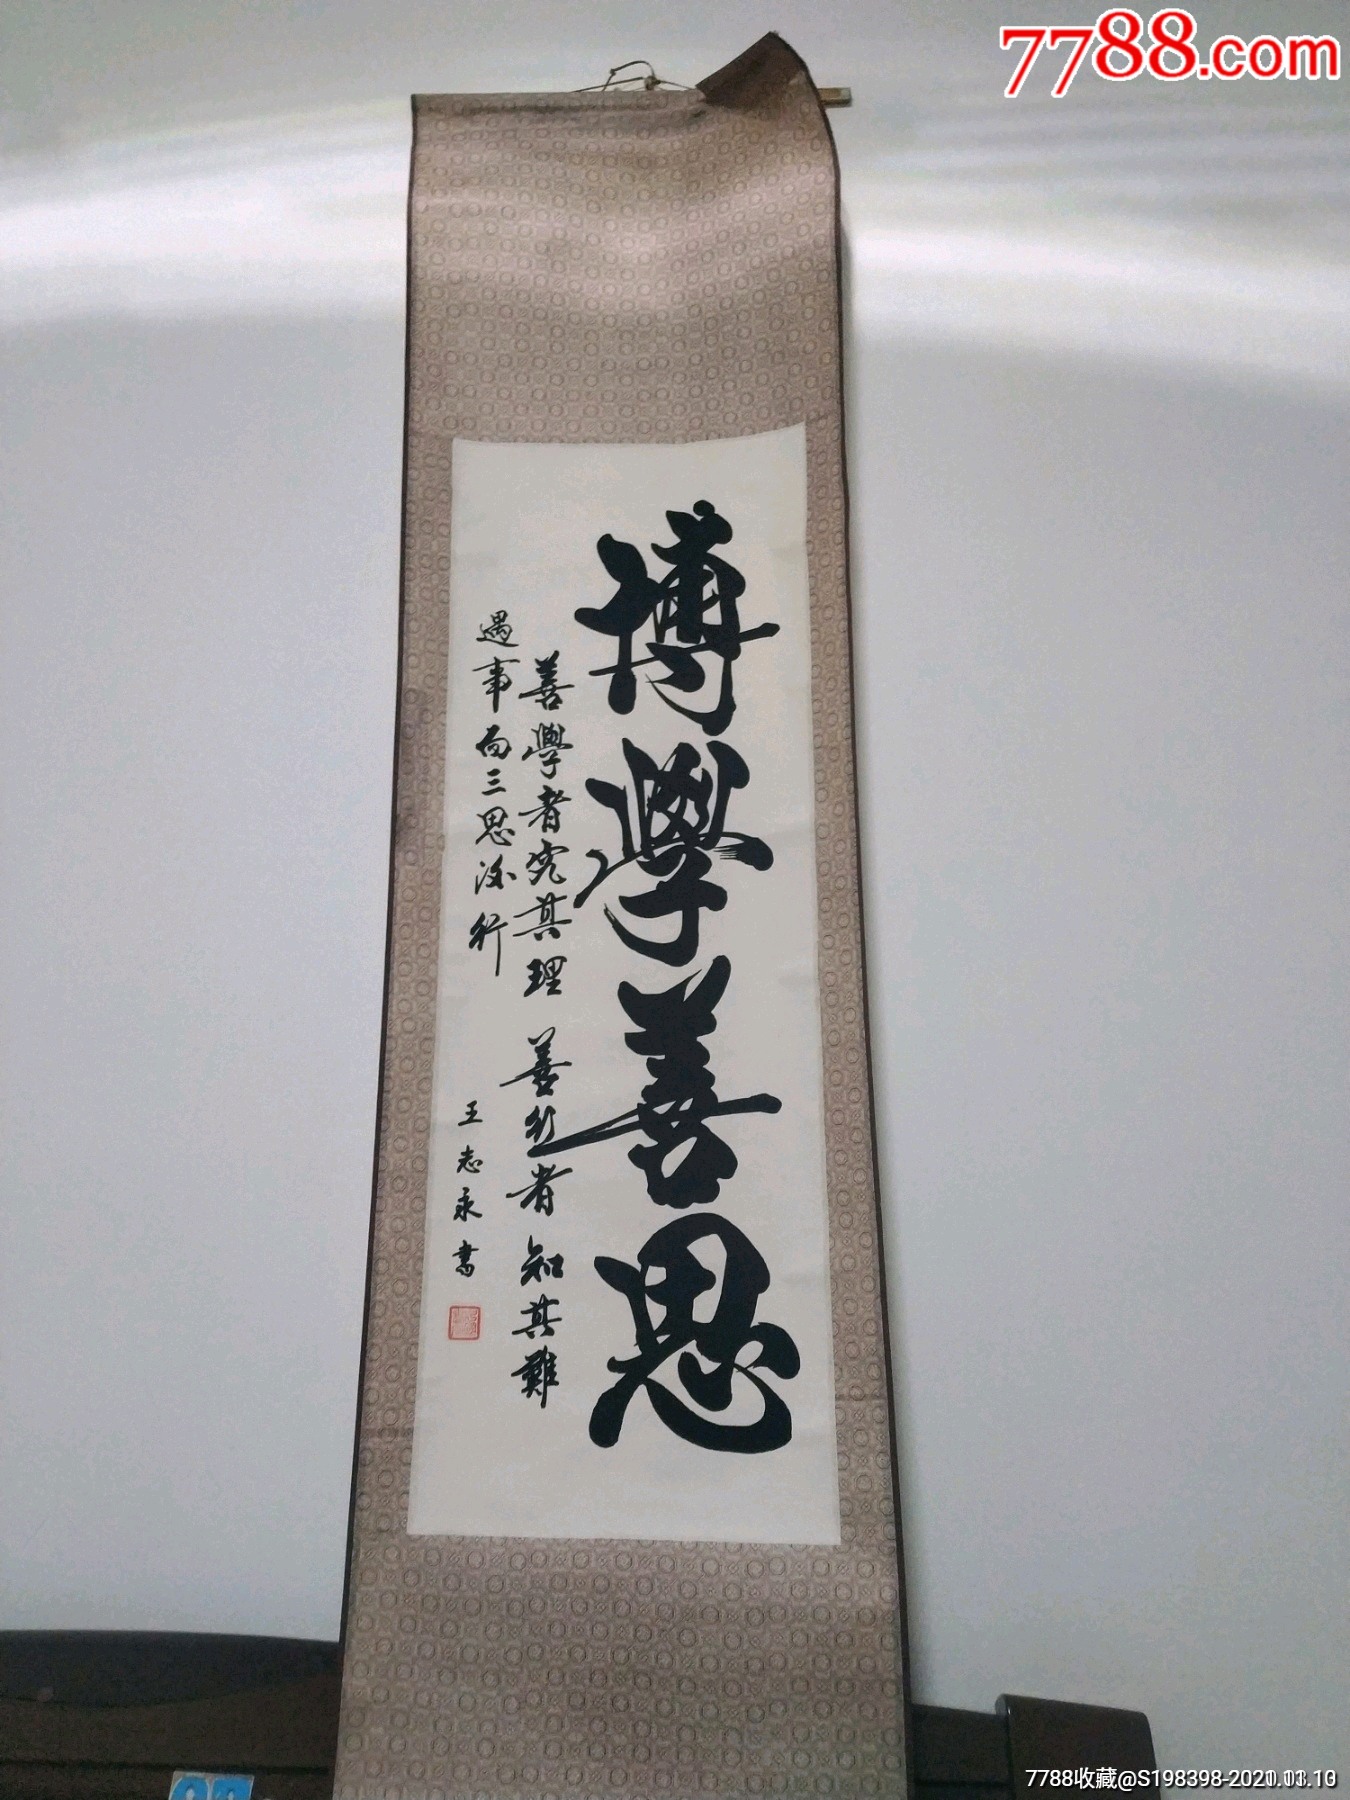 7788.com
博學善思
善學者究其理 善行者知其難
遇事而三思後行
王志永書
7788收藏@S198398-2020.11.10